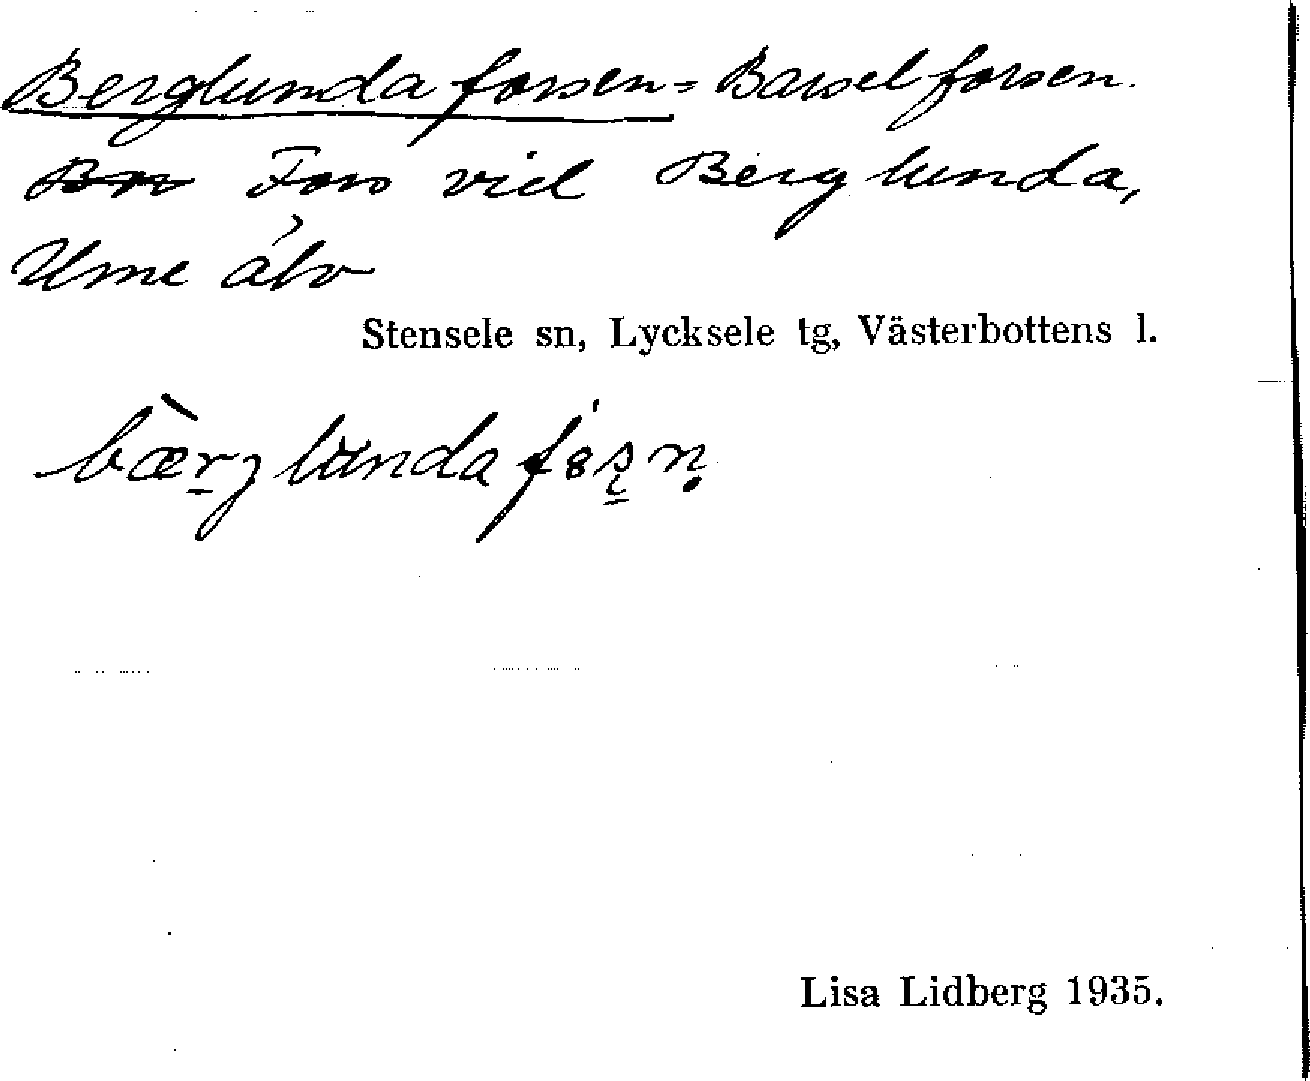 Berglundaforsen = Barselforsen.
Fors vid Berglunda,
Ume älv
Stensele sn, Lycksele tg, Västerbottens l.
Lisa Lidberg 1935.